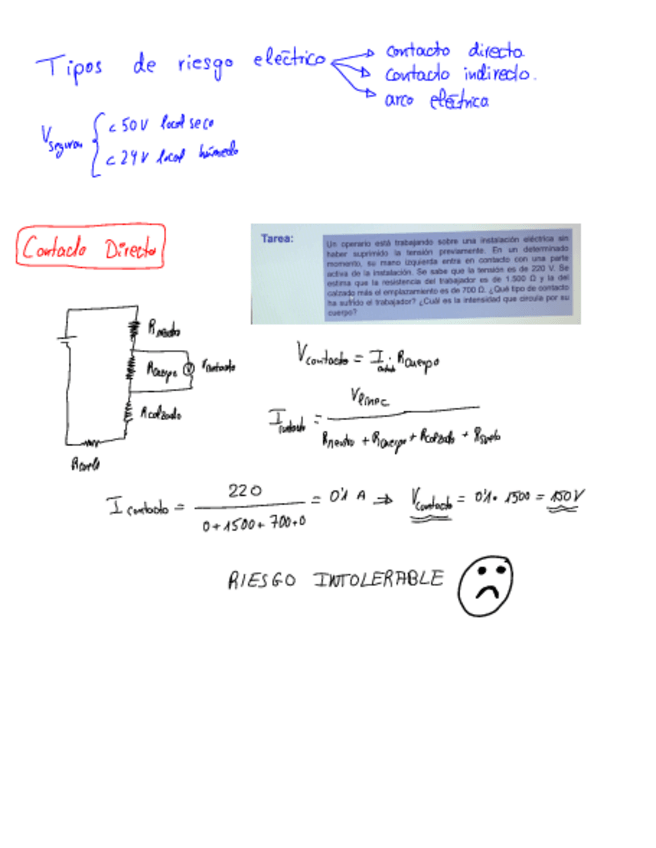 Tipos de riesgo eléctrico
contacto directo
contacto indirecto.
arco eléctrica
Vseguras
< 50V local seco
< 24V local húmedo
Contacto Directo
Tarea:
Un operario está trabajando sobre una instalación eléctrica sin
haber suprimido la tensión previamente. En un determinado
momento, su mano izquierda entra en contacto con una parte
activa de la instalación. Se sabe que la tensión es de 220 V. Se
estima que la resistencia del trabajador es de 1.500 Ω y la del
calzado más el emplazamiento es de 700 Ω. ¿Qué tipo de contacto
ha sufrido el trabajador? ¿Cuál es la intensidad que circula por su
cuerpo?
Rneutro
Rcuerpo V Vcontacto
Rcalzado
Rsuelo
Vcontacto = Icontacto · Rcuerpo
Icontacto = Vlinec / Rneutro + Rcuerpo + Rcalzado + Rsuelo
Icontacto = 220 / 0+1500+700+0 = 0'1 A ⇒ Vcontacto = 0'1 · 1500 = 150V
RIESGO INTOLERABLE